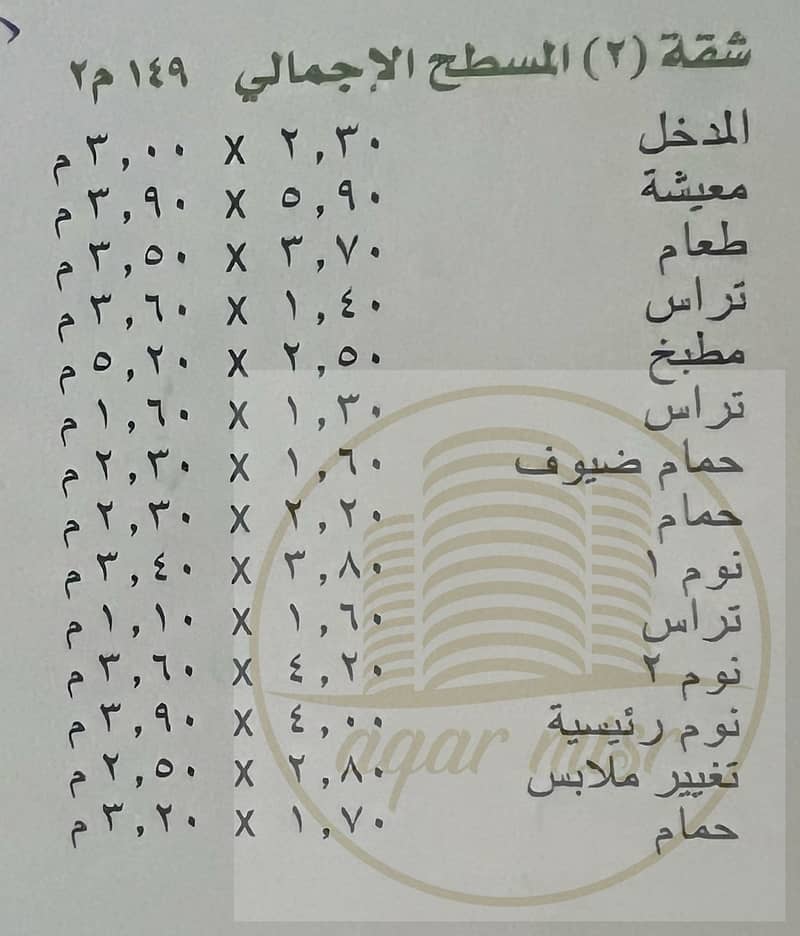 شقة (٢) المسطح الإجمالي ١٤٩ م٢
المدخل ٢,٣٠ X ٣,٠٠ م
معيشة ٥,٩٠ X ٣,٩٠ م
طعام ٣,٧٠ X ٣,٥٠ م
تراس ١,٤٠ X ٣,٦٠ م
مطبخ ٢,٥٠ X ٥,٢٠ م
تراس ١,٣٠ X ١,٦٠ م
حمام ضيوف ١,٦٠ X ٢,٣٠ م
حمام ٢,٢٠ X ٢,٣٠ م
نوم ١ ٣,٨٠ X ٣,٤٠ م
تراس ١,٦٠ X ١,١٠ م
نوم ٢ ٤,٢٠ X ٣,٦٠ م
نوم رئيسية ٤,٠٠ X ٣,٩٠ م
تغيير ملابس ٢,٨٠ X ٢,٥٠ م
حمام ١,٧٠ X ٣,٢٠ م
aqar misr